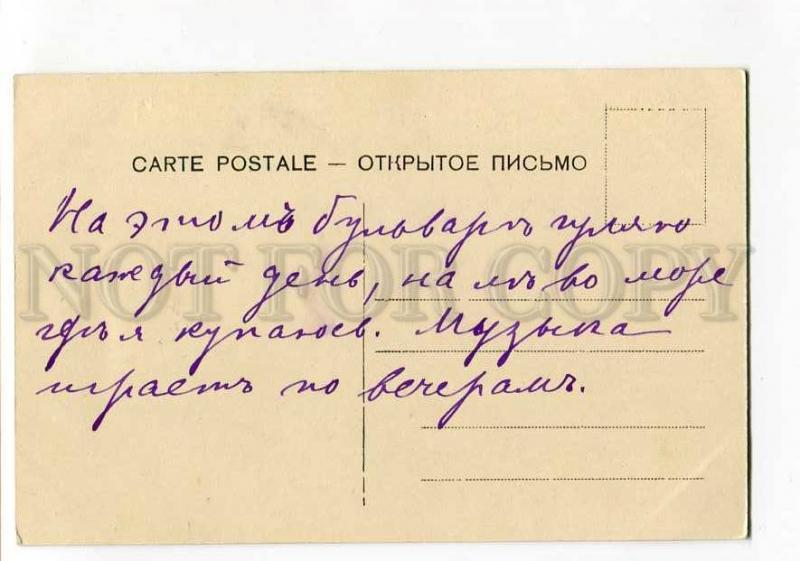 CARTE POSTALE — ОТКРЫТОЕ ПИСЬМО
На этомъ бульварѣ гуляю
каждый день, налѣво море
гдѣ я купаюсь. Музыка
играетъ по вечерамъ.
NOT FOR COPY